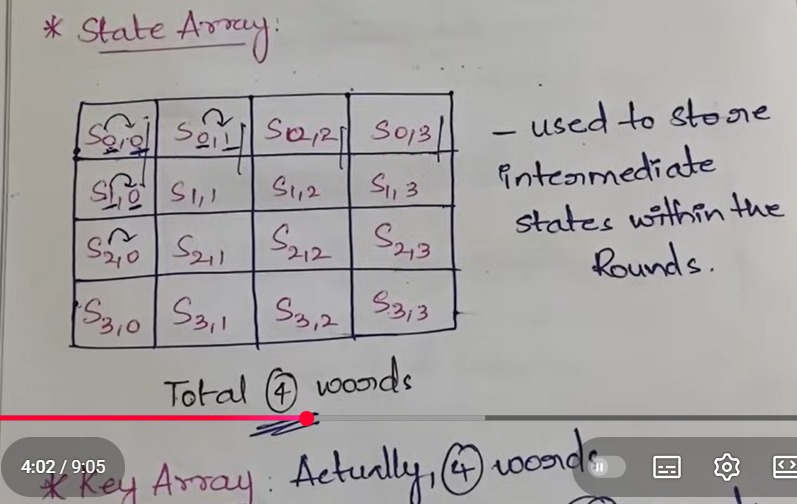 * State Array:
S0,0 S0,1 S0,2 S0,3
S1,0 S1,1 S1,2 S1,3
S2,0 S2,1 S2,2 S2,3
S3,0 S3,1 S3,2 S3,3
- used to store
intermediate
states within the
Rounds.
Total 4 words
4:02 / 9:05
* Key Array: Actually, 4 words